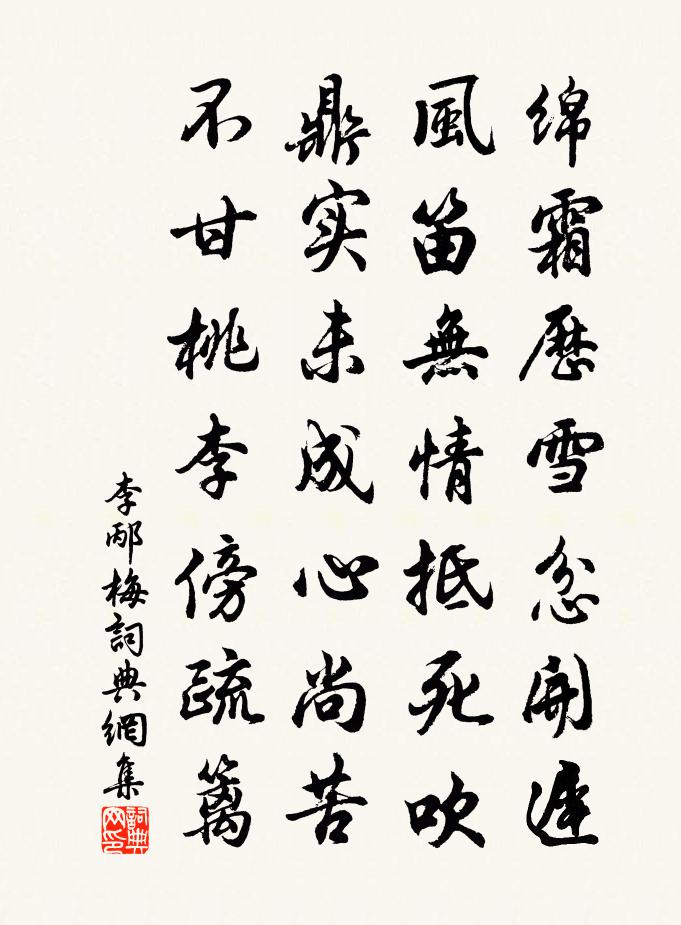 绵霜歷雪忿開遲
風笛無情抵死吹
鼎实未成心尚苦
不甘桃李傍疏篱
李邴梅詞典網集
詞典网印